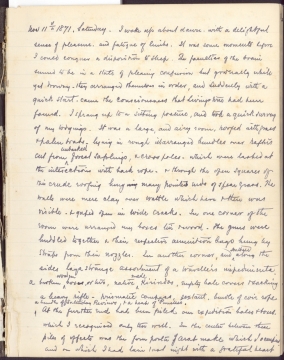 Nov 11th 1871, Saturday. I woke up about dawn with a delightful
sense of pleasure, and fatigue of limbs. It was some moments before
I could conquer a disposition to sleep. The faculties of the brain
seemed to be in a state of pleasing confusion but gradually while
yet drowsy, they arranged themselves in order, and suddenly with a
quick start came the consciousness that Livingstone had been
found. I sprang up to a sitting position, and took a quick survey
of my lodgings. It was a large and airy room, roofed with
palm branches, laying in rough disarranged bundles over rafters
cut from forest saplings, & cross poles, which were lashed at
the intersections with bark rope, & through the open squares of
this crude roofing hung many pointed ends of spear grass. The
walls were mere clay over wattle which here & there was
visible & gaped open in wide cracks. In one corner of the
room were arranged my boxes two & two. The guns were
huddled together & their respective ammunition bags hung by
straps from their nozzles. In another corner, and along the
sides lay a strange assortment of a traveller's impedimenta,
boxes, native
a heavy rifle, prismatic compass, sextant, coils of rope
At the further end had been piled our expedition bales about
which I recognised only too well. In the center between these
piles of effects was the four posted
and on which I had lain last night with a